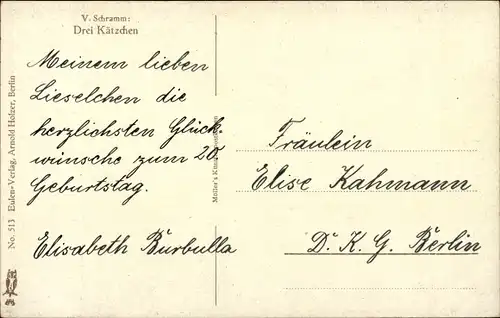 V. Schramm:
Drei Kätzchen
Meinem lieben
Lieselchen die
herzlichsten Glück-
wünsche zum 20.
Geburtstag.
Elisabeth Burbulla
Fräulein
Elise Kahmann
D. K. G. Berlin
No. 513 Eulen-Verlag, Arnold Holzer, Berlin